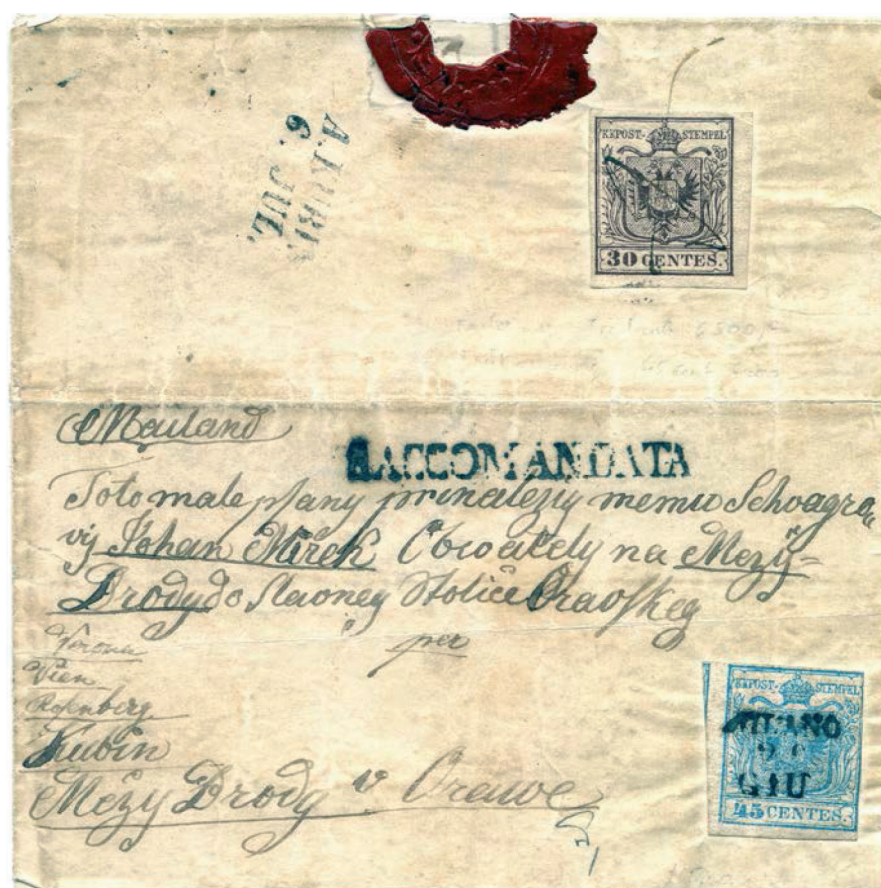 A.KUBI.
6. JUL.
KKPOST-STEMPEL
30 CENTES.
Mailand
RACCOMANDATA
Toto male psany prinalezig memu Schvagro„
vÿ Johan Mirek Obwately na Mezÿ-
Brodÿ do slavneg Stolice Oravskeg
per
Verona
Vien
Rosenberg
Kubin
Mezÿ Brodÿ v Orawe
KKPOST-STEMPEL
MILANO
GIU
45 CENTES.